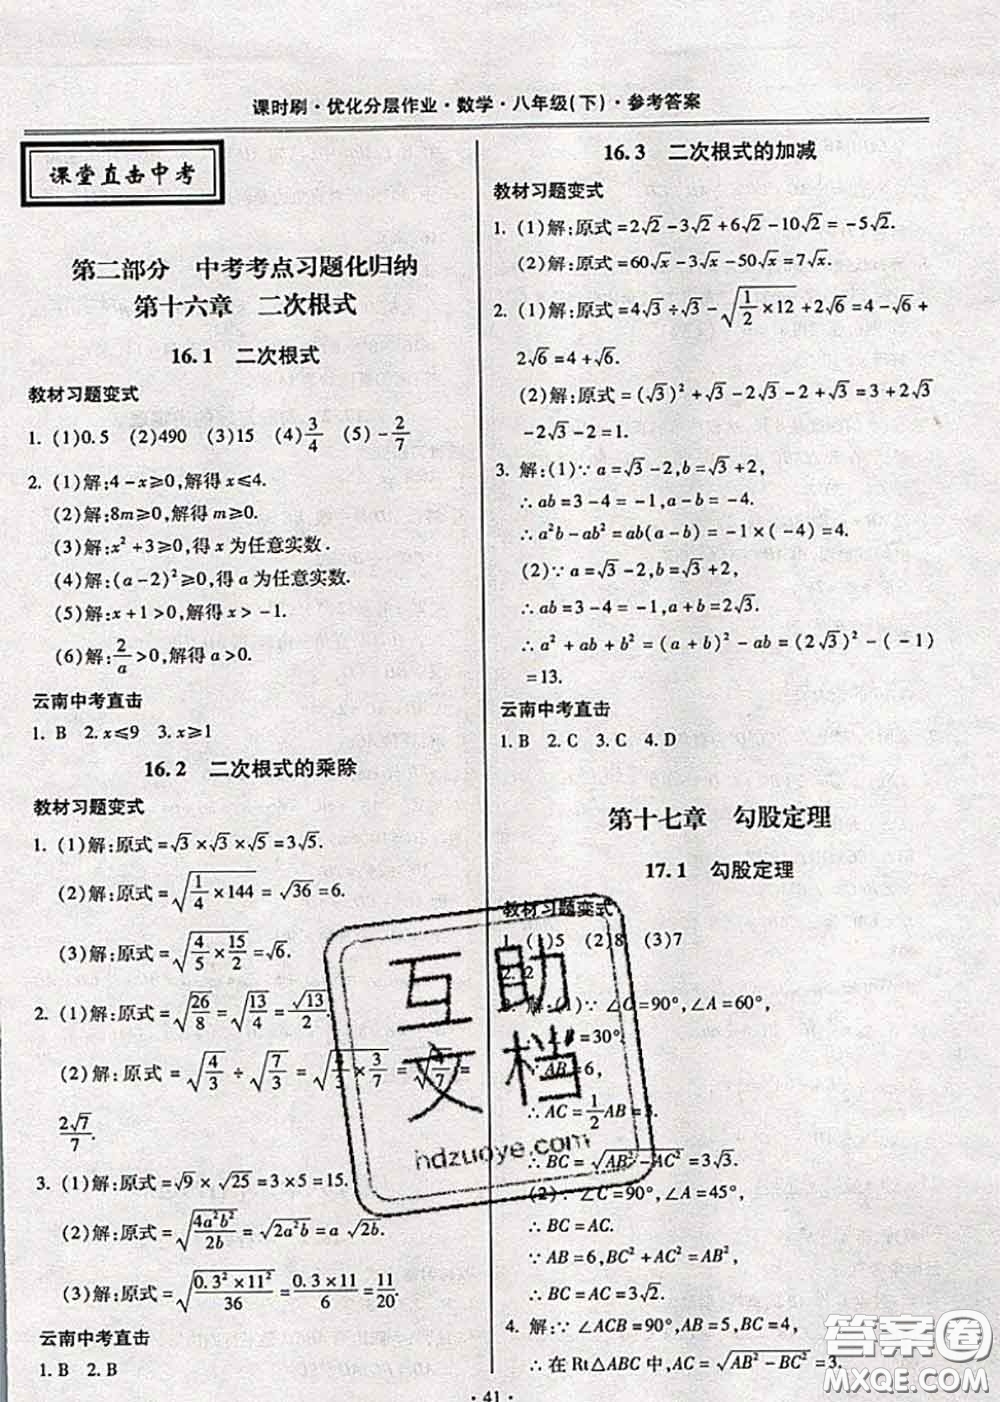 课时刷·优化分层作业·数学·八年级(下)·参考答案
课堂直击中考
第二部分 中考考点习题化归纳
第十六章 二次根式
16.1 二次根式
教材习题变式
1. (1)0.5 (2)490 (3)15 (4)3/4 (5)-2/7
2. (1)解:4-x≥0,解得x≤4.
(2)解:8m≥0,解得m≥0.
(3)解:x²+3≥0,得x为任意实数.
(4)解:(a-2)²≥0,得a为任意实数.
(5)解:x+1>0,解得x>-1.
(6)解:2/a>0,解得a>0.
云南中考直击
1. B 2. x≤9 3. x≥1
16.2 二次根式的乘除
教材习题变式
1. (1)解:原式=√3×√3×√5=3√5.
(2)解:原式=√(1/4×144)=√36=6.
(3)解:原式=√(4/5×15/2)=√6.
2. (1)解:原式=√(26/8)=√(13/4)=√13/2.
(2)解:原式=√(4/3)÷√(7/3)=√(4/3×3/7)=√(4/7)=
2√7/7.
3. (1)解:原式=√9×√25=3×5=15.
(2)解:原式=√(4a²b²/2b)=√(2a²b)=a√(2b).
(3)解:原式=√(0.3²×11²/36)=0.3×11/6=11/20.
云南中考直击
1. B 2. B
16.3 二次根式的加减
教材习题变式
1. (1)解:原式=2√2-3√2+6√2-10√2=-5√2.
(2)解:原式=60√x-3√x-50√x=7√x.
2. (1)解:原式=4√3÷√3-√(1/2×12)+2√6=4-√6+
2√6=4+√6.
(2)解:原式=(√3)²+√3-2√3-2+√3=3+2√3
-2√3-2=1.
3. 解:(1)∵a=√3-2,b=√3+2,
∴ab=3-4=-1,a-b=-4.
∴a²b-ab²=ab(a-b)=-1×(-4)=4.
(2)∵a=√3-2,b=√3+2,
∴ab=3-4=-1,a+b=2√3.
∴a²+ab+b²=(a+b)²-ab=(2√3)²-(-1)
=13.
云南中考直击
1. B 2. C 3. C 4. D
第十七章 勾股定理
17.1 勾股定理
教材习题变式
1. (1)5 (2)8 (3)7
2. 2
3. 解:(1)∵∠C=90°,∠A=60°,
∴∠B=30°.
∵AB=6,
∴AC=1/2AB=3.
∴BC=√(AB²-AC²)=3√3.
(2)∵∠C=90°,∠A=45°,
∴BC=AC.
∵AB=6,BC²+AC²=AB²,
∴BC=AC=3√2.
4. 解:∵∠ACB=90°,AB=5,BC=4,
∴在Rt△ABC中,AC=√(AB²-BC²)=3.
·41·
互助
文档
hdzuoye.com
答案圈
MXQE.COM